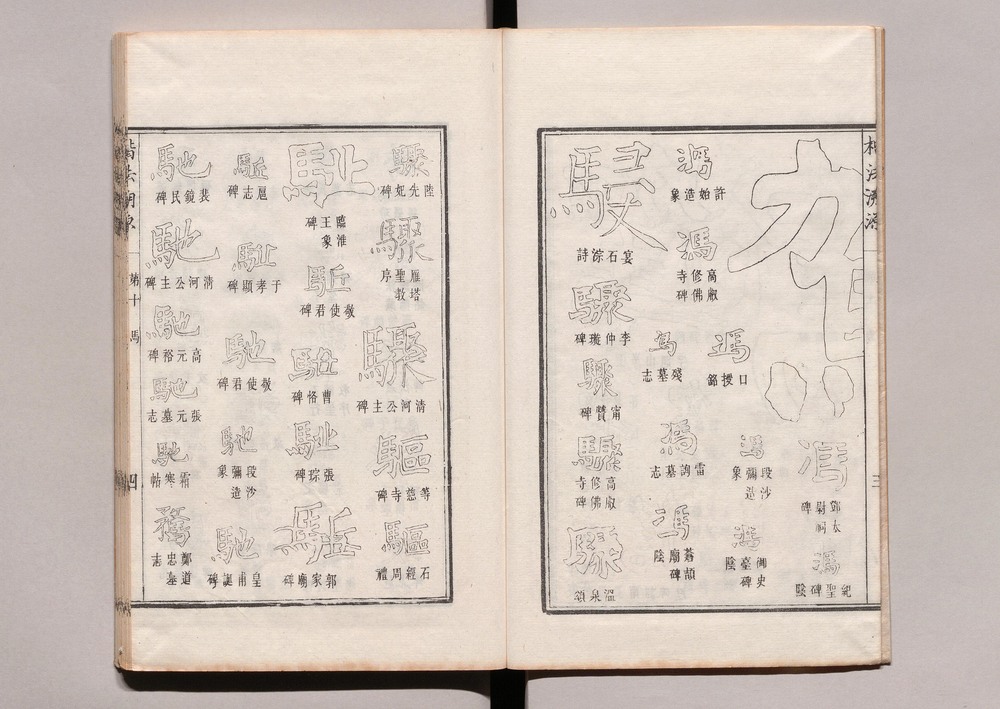 楷法溯源
三
馮
鄧太尉祠碑
馮
紀聖碑陰
馮
馮
段沙彌造象
馮
御史臺碑陰
馮
許始造象
馮
高叡修佛寺碑
馮
殘墓志
馮
雷詢墓志
馮
蒼頡廟碑陰
宴石淙詩
驟
李仲璇碑
驟
甯贙碑
驟
高叡修佛寺碑
驟
溫泉頌
驟
陸先妃碑
驟
雁塔聖教序
驟
清河公主碑
驅
等慈寺碑
驅
石經周禮
臨淮王象碑
駈
敬使君碑
曹恪碑
張琮碑
駈
郭家廟碑
駈
扈志碑
于孝顯碑
馳
敬使君碑
馳
段沙彌造象
馳
皇甫誕碑
馳
裴鏡民碑
馳
清河公主碑
馳
高元裕碑
馳
張元墓志
馳
霜寒帖
騖
鄭道忠墓志
第十
馬
四